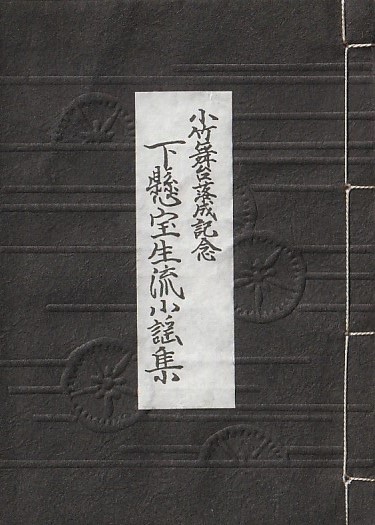 小竹舞台落成記念
下懸宝生流小謡集